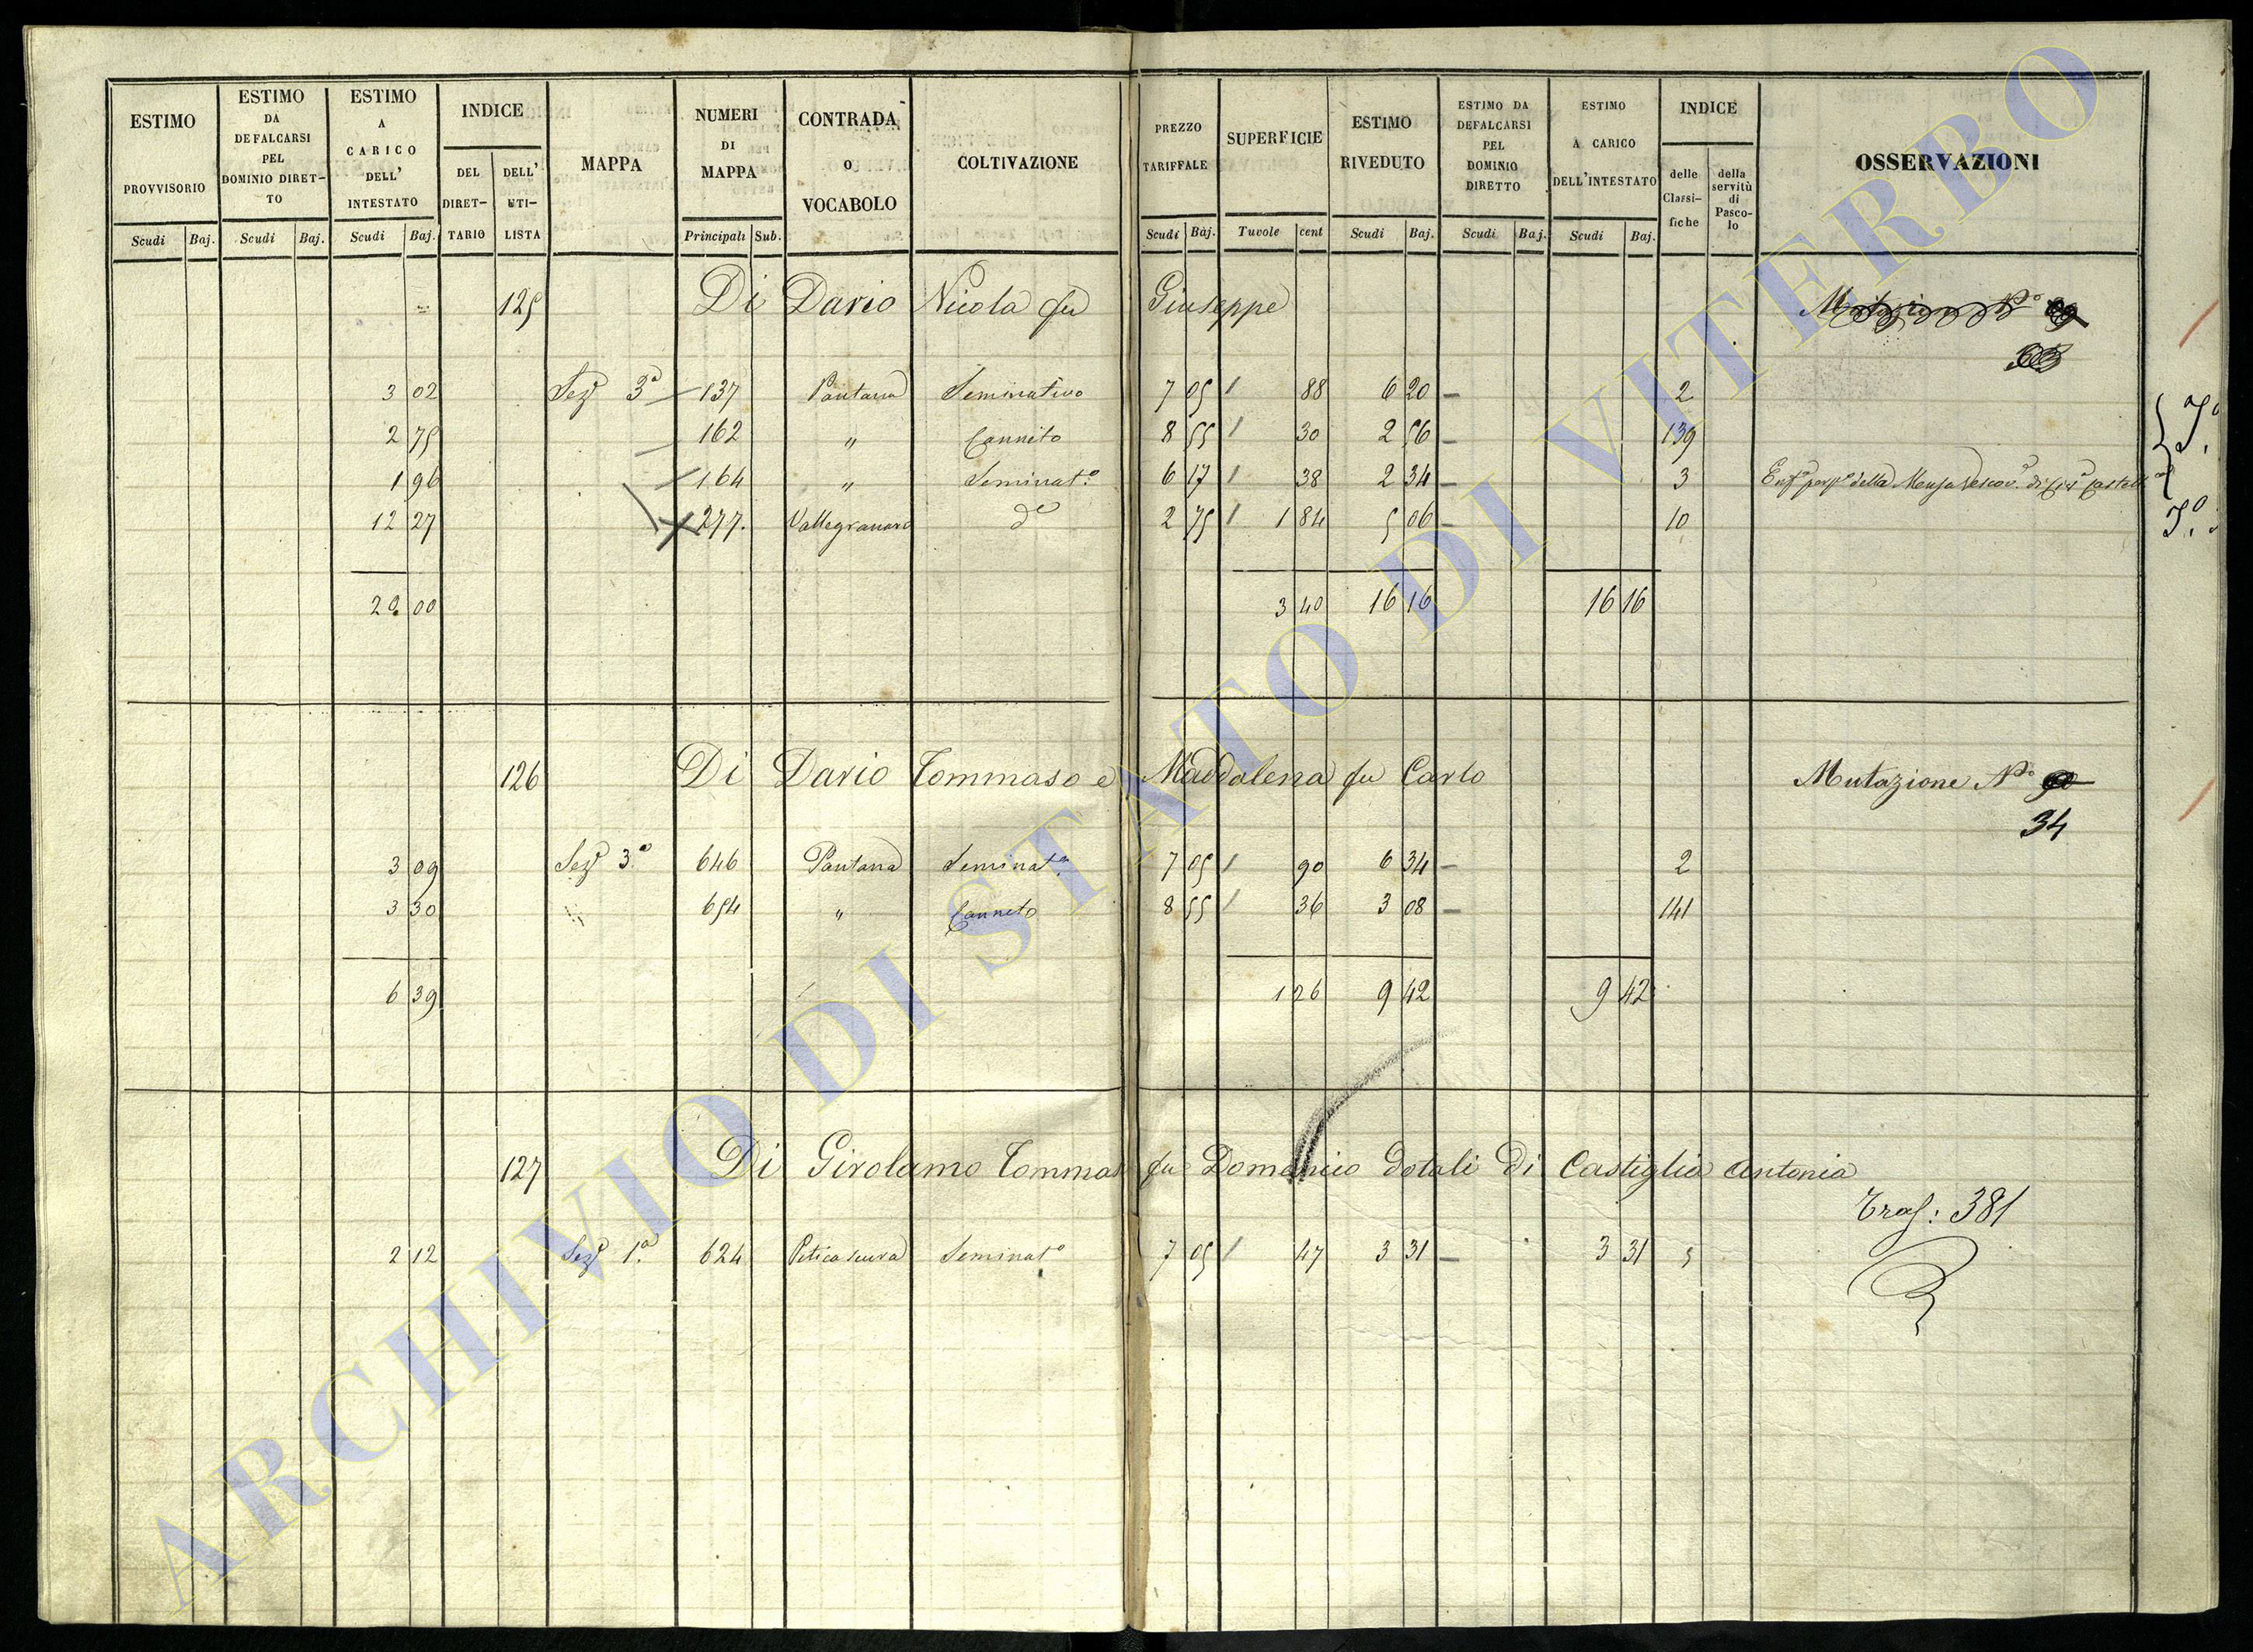 ESTIMO PROVVISORIO
ESTIMO DA DEFALCARSI PEL DOMINIO DIRET-TO
ESTIMO A CARICO DELL' INTESTATO
INDICE
DEL DIRET-TARIO
DELL' UTI-LISTA
MAPPA
NUMERI DI MAPPA
CONTRADA o VOCABOLO
COLTIVAZIONE
PREZZO TARIFFALE
SUPERFICIE
ESTIMO RIVEDUTO
ESTIMO DA DEFALCARSI PEL DOMINIO DIRETTO
ESTIMO A CARICO DELL'INTESTATO
INDICE
delle Classi-fiche
della servitù di Pasco-lo
OSSERVAZIONI
Scudi Baj. Scudi Baj. Scudi Baj. Principali Sub. Scudi Baj. Tavole cent Scudi Baj. Scudi Baj. Scudi Baj.
125 Di Dario Nicola fu Giuseppe
3 02 Sez. 3a 137 Pantana Seminativo 7 05 / 88 6 20 — 2
2 75 162 " Canneto 8 55 / 30 2 56 — 139
1 96 164 " Seminato 6 17 / 38 2 34 — 3 della Mensa Vescov.
12 27 277. Vallegranara do 2 75 / 1 84 5 06 — 10
20 00 3 40 16 16 16 16
126 Di Dario Tommaso e Maddalena fu Carlo Mutazione No
34
3 09 Sez. 3a 646 Pantana Seminato 7 05 / 90 6 34 — 2
3 30 " 654 " Canneto 8 55 / 36 3 08 — 141
6 39 1 26 9 42 9 42
127 Di Girolamo Tommaso fu Domenico dotali di Castiglia Antonia
Tras: 381
2 12 Sez. 1a 624 Seminato 7 05 / 47 3 31 — 3 31 5
ARCHIVIO DI STATO DI VITERBO